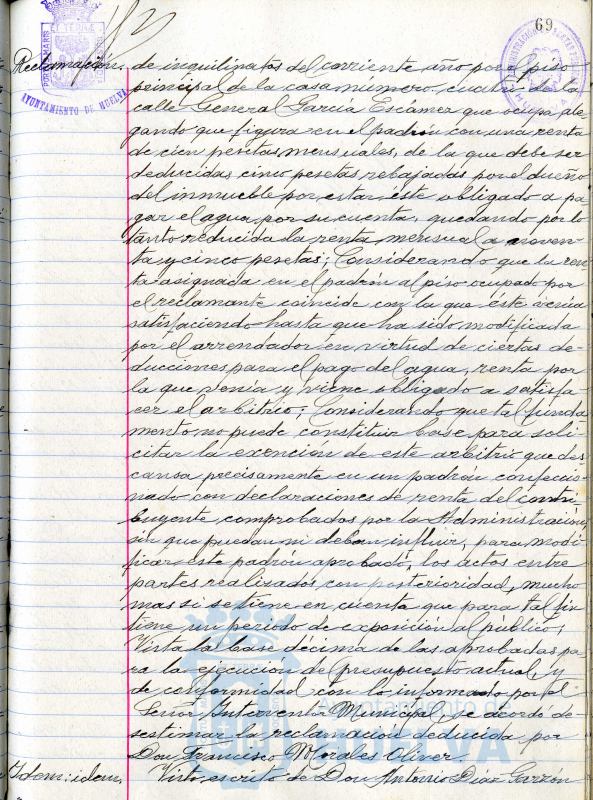 69
Reclamación. de inquilinatos del corriente año por el piso
principal de la casa número cuatro de la
calle General García Escámez que ocupa, ale
gando que figura en el padrón con una renta
de cien pesetas mensuales, de la que debe ser
deducidas cinco pesetas rebajadas por el dueño
del inmueble por estar éste obligado a pa
gar el agua por su cuenta, quedando por lo
tanto reducida la renta mensual a noven
ta y cinco pesetas; Considerando que la ren
ta asignada en el padrón al piso ocupado por
el reclamante coincide con la que éste venía
satisfaciendo hasta que ha sido modificada
por el arrendador en virtud de ciertas de-
ducciones para el pago del agua, renta por
la que venía y viene obligado a satisfa
cer el arbitrio; Considerando que tal funda
mento no puede constituir base para soli-
citar la exención de este arbitrio que des
cansa precisamente en un padrón confeccio
nado con declaraciones de renta del contri
buyente, comprobados por la Administración,
sin que puedan ni deban influir, para modi
ficar este padrón aprobado, los actos entre
partes realizados con posterioridad, mucho
mas si se tiene en cuenta que para tal fin
tiene un periodo de exposición al público;
Vista la base décima de las aprobadas pa-
ra la ejecución de presupuesto actual, y
de conformidad con lo informado por el
Señor Interventor Municipal, se acordó de-
sestimar la reclamación deducida por
Don Francisco Morales Oliver.
Idem: idem. Visto escrito de Don Antonio Díaz Garzón
AYUNTAMIENTO DE HUELVA
Ayuntamiento de
HUELVA